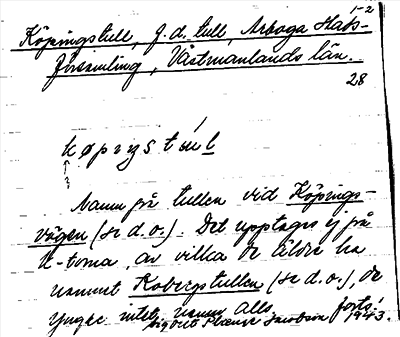 1-2
Köpingstull, f.d. tull, Arboga Stads-
församling, Västmanlands län.
28
Namn på tullen vid Köpings-
vägen (se d.o.). Det upptages ej på
K-torna, av vilka de äldre ha
namnet Kobergstullen (se d.o.), de
yngre intet namn alls. forts!
1943.